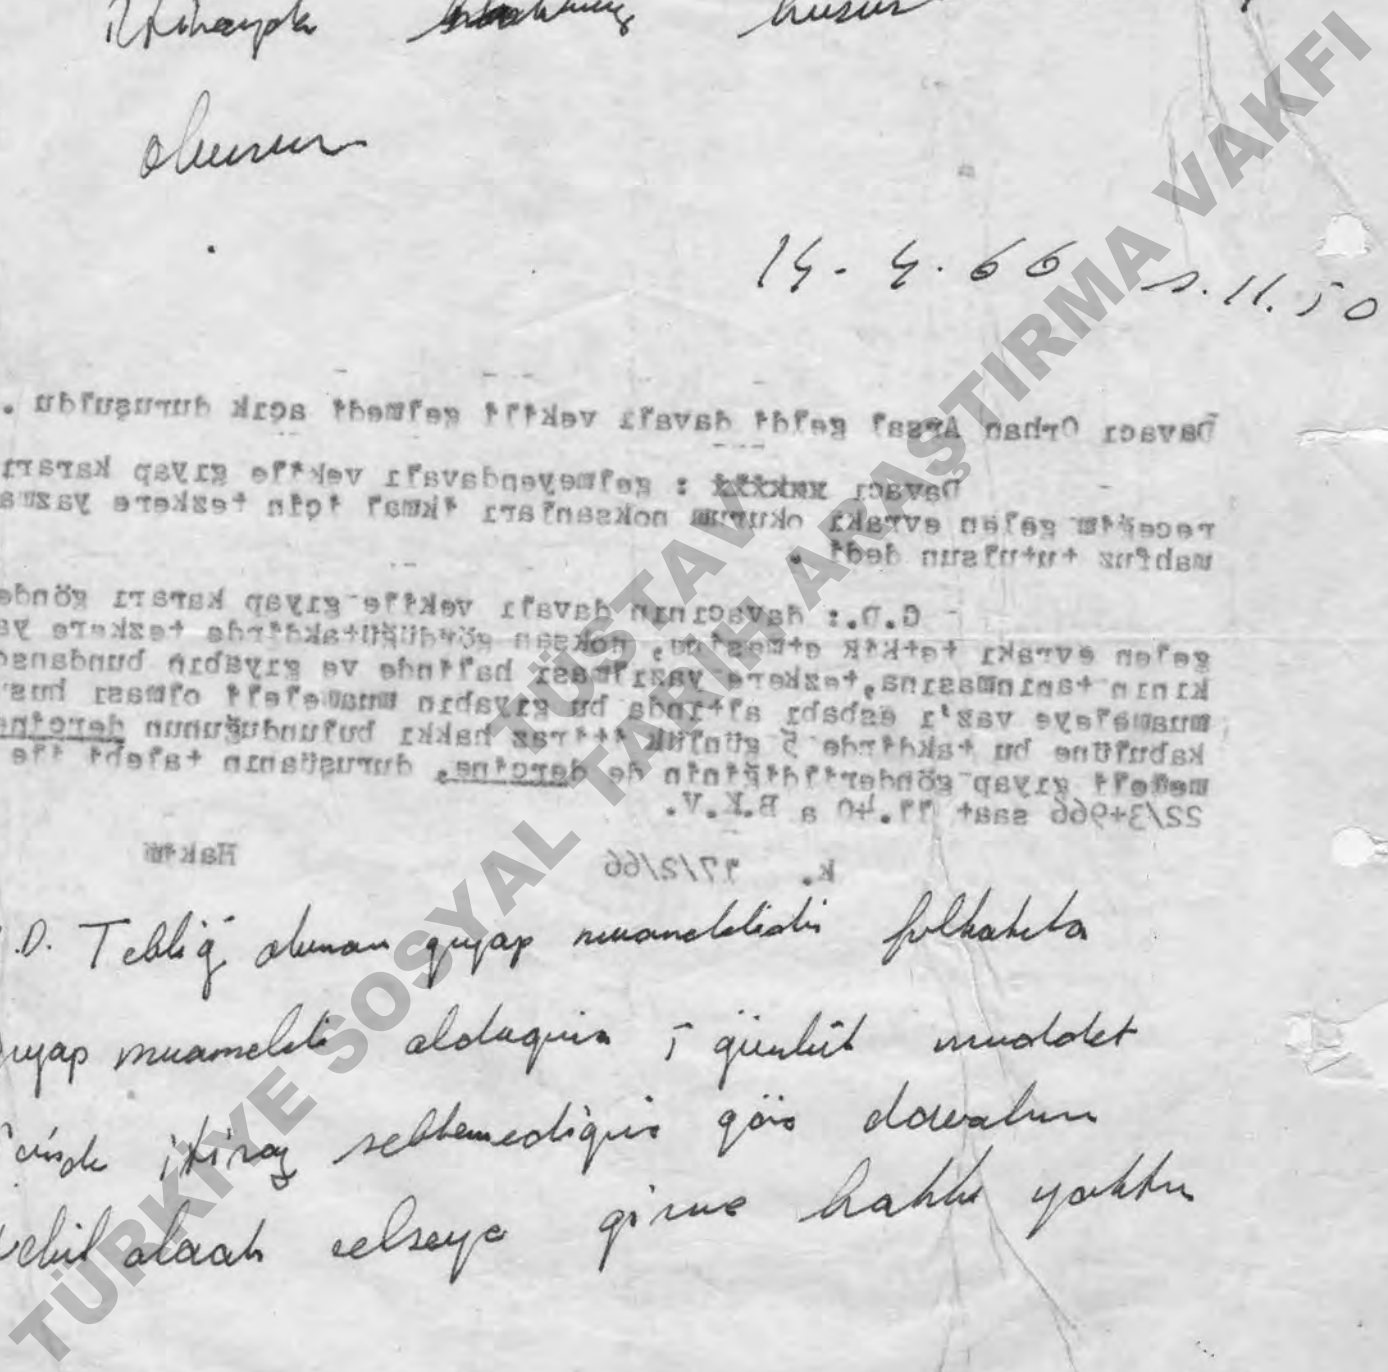 olunur
14.4.66 s.11.50
Davacı Orhan Arsal geldi davalı vekili gelmedi açık duruşuldu .
Davacı : gelmeyendavalı vekile gıyap kararı
gelen evrakı okurum noksanları ikmal için tezkere yazma
mahfuz tutulsun dedi .
G.D.: davacının davalı vekile gıyap kararı gönde
gelen evrakı tetkik etmesine, noksan gördüğütakdirde tezkere ya
kının tanınmasına,tezkere yazılması halinde ve gıyabın bundansa
muameleye vaz'ı esbabı altında bu gıyabın muameleli olması hus
kabulüne bu takdirde 5 günlük itiraz hakkı bulunduğunun dercine
meleli gıyap gönderildiğinin de dercine, duruşmanın talebi ile
22/3+966 saat 11.40 a B.K.V.
k. 17/2/66 Hakim
.D. Tebliğ olunan gıyap muamelelidir
muameleli olduğuna 5 günlük müddet
itiraz göre davalının
olarak celseye girme hakkı yoktur
TÜSTAV
TÜRKİYE SOSYAL TARİH ARAŞTIRMA VAKFI